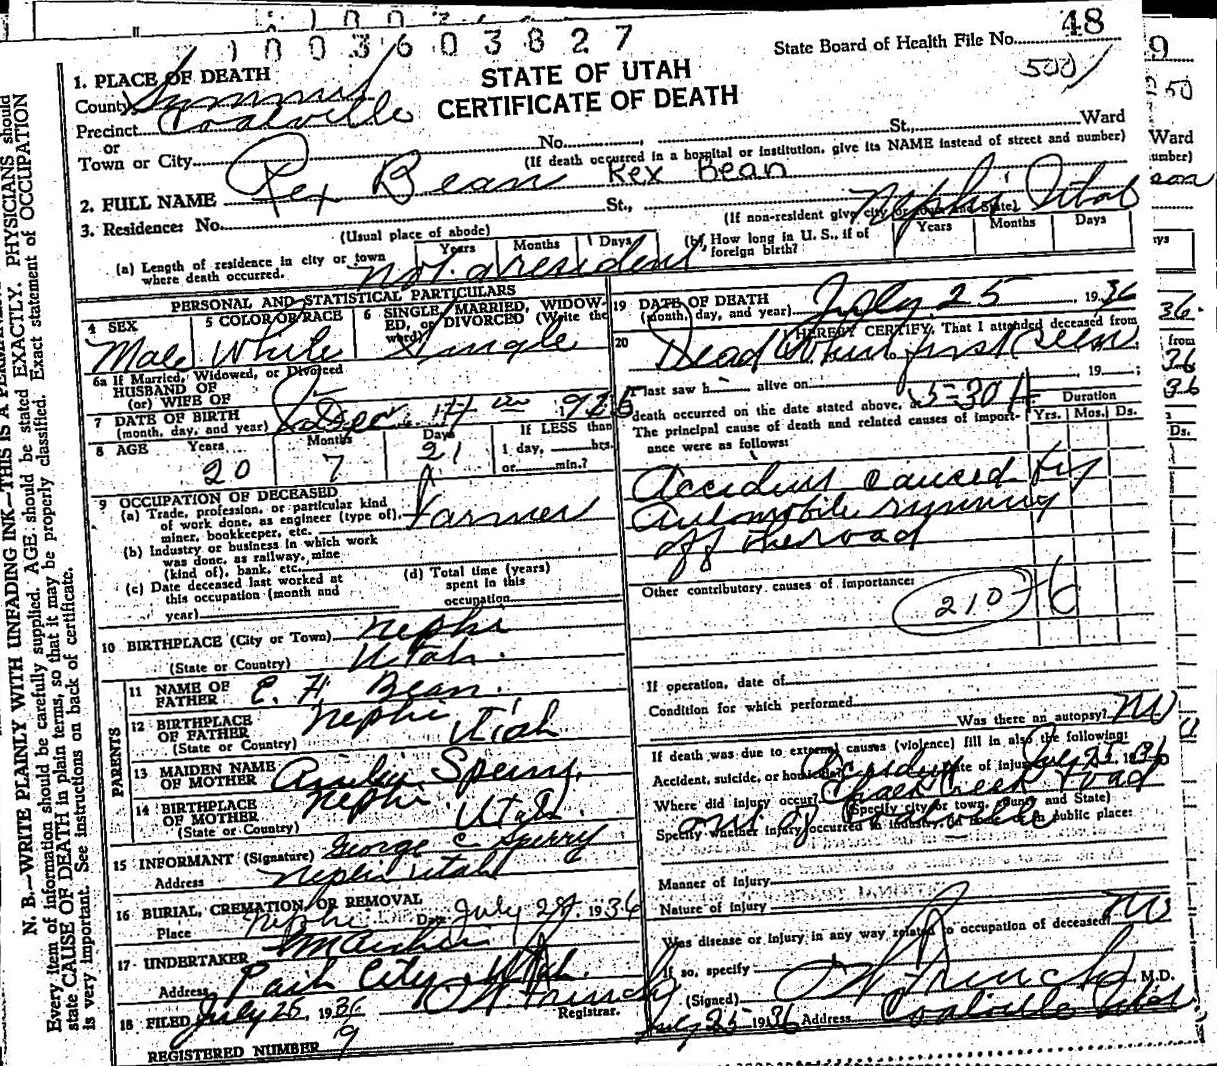 1003603827
State Board of Health File No. 48
500/
STATE OF UTAH
CERTIFICATE OF DEATH
1. PLACE OF DEATH
County Summit
Precinct Coalville
or
Town or City No. St., Ward
(If death occurred in a hospital or institution, give its NAME instead of street and number)
2. FULL NAME Rex Bean Rex Bean
3. Residence: No. St., Nephi Utah
(Usual place of abode) (If non-resident give city or town and State)
(a) Length of residence in city or town where death occurred. Years Months Days not a resident
(b) How long in U. S., if of foreign birth? Years Months Days
PERSONAL AND STATISTICAL PARTICULARS
4 SEX Male
5 COLOR OR RACE White
6 SINGLE, MARRIED, WIDOWED, or DIVORCED (Write the word) Single
6a If Married, Widowed, or Divorced
HUSBAND OF
(or) WIFE OF
7 DATE OF BIRTH
(month, day, and year)
8 AGE Years 20 Months 7 Days 21 If LESS than 1 day, hrs. or min.?
9 OCCUPATION OF DECEASED
(a) Trade, profession, or particular kind of work done, as engineer (type of), miner, bookkeeper, etc. Farmer
(b) Industry or business in which work was done, as railway, mine (kind of), bank, etc.
(c) Date deceased last worked at this occupation (month and year)
(d) Total time (years) spent in this occupation
10 BIRTHPLACE (City or Town) Nephi
(State or Country) Utah.
PARENTS
11 NAME OF FATHER E. H. Bean.
12 BIRTHPLACE OF FATHER Nephi
(State or Country) Utah
13 MAIDEN NAME OF MOTHER Sperry
14 BIRTHPLACE OF MOTHER Nephi
(State or Country) Utah.
15 INFORMANT (Signature) George C Sperry
Address Nephi Utah
16 BURIAL, CREMATION, OR REMOVAL
Place Nephi Date July 27, 1936
17 UNDERTAKER
Address Park City Utah.
18 FILED July 25, 1936 Registrar.
REGISTERED NUMBER 9
19 DATE OF DEATH
(month, day, and year) July 25, 1936
20 I HEREBY CERTIFY, That I attended deceased from
Dead When first seen
, 19 ;
I last saw h alive on , 19 ;
death occurred on the date stated above, at 5-30 A
The principal cause of death and related causes of importance were as follows:
Duration
Yrs. Mos. Ds.
Accident caused by
Automobile running
off the road
Other contributory causes of importance:
210-6
If operation, date of
Condition for which performed
Was there an autopsy? No
If death was due to external causes (violence) fill in also the following:
Accident, suicide, or homicide? Accident Date of injury July 25 1936
Where did injury occur? Chalk Creek road
(Specify city or town, county and State)
out of Coalville
Specify whether injury occurred in industry, in home, or in public place:
Manner of injury
Nature of injury
Was disease or injury in any way related to occupation of deceased? No
If so, specify
(Signed) M.D.
July 25 1936 Address Coalville Utah
N. B.—WRITE PLAINLY WITH UNFADING INK—THIS IS A
Every item of information should be carefully supplied. AGE should be stated EXACTLY. PHYSICIANS should
state CAUSE OF DEATH in plain terms, so that it may be properly classified. Exact statement of OCCUPATION
is very important. See instructions on back of certificate.